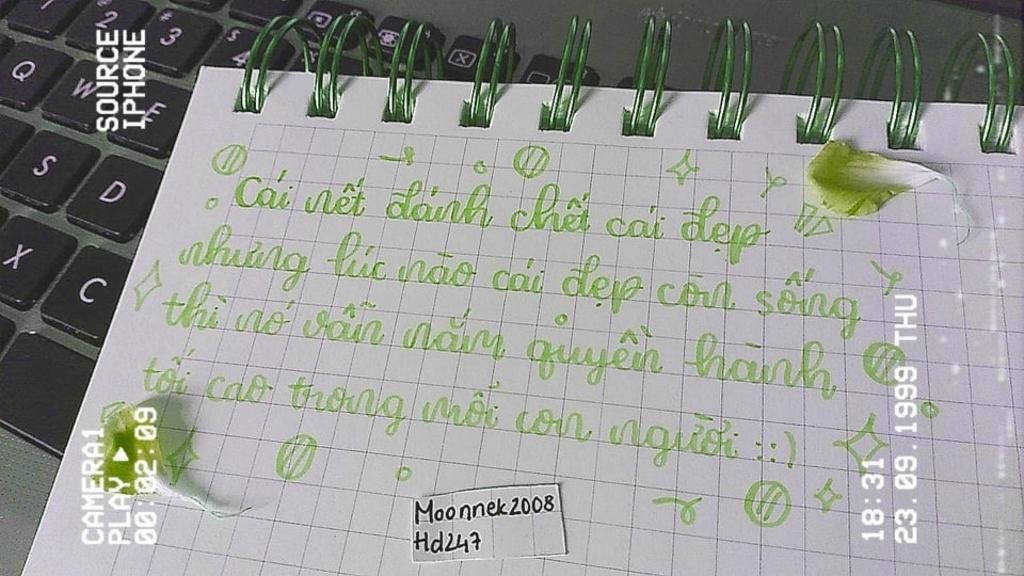 SOURCE
IPHONE
2
3
4
Q
W
S
D
X
C
Cái nết đánh chết cái đẹp
nhưng lúc nào cái đẹp còn sống
thì nó vẫn nắm quyền hành
tối cao trong mỗi con người ::)
Moonnek2008
Hd247
CAMERA1
PLAY ▶
00:02:09
18:31
23.09.1999 THU